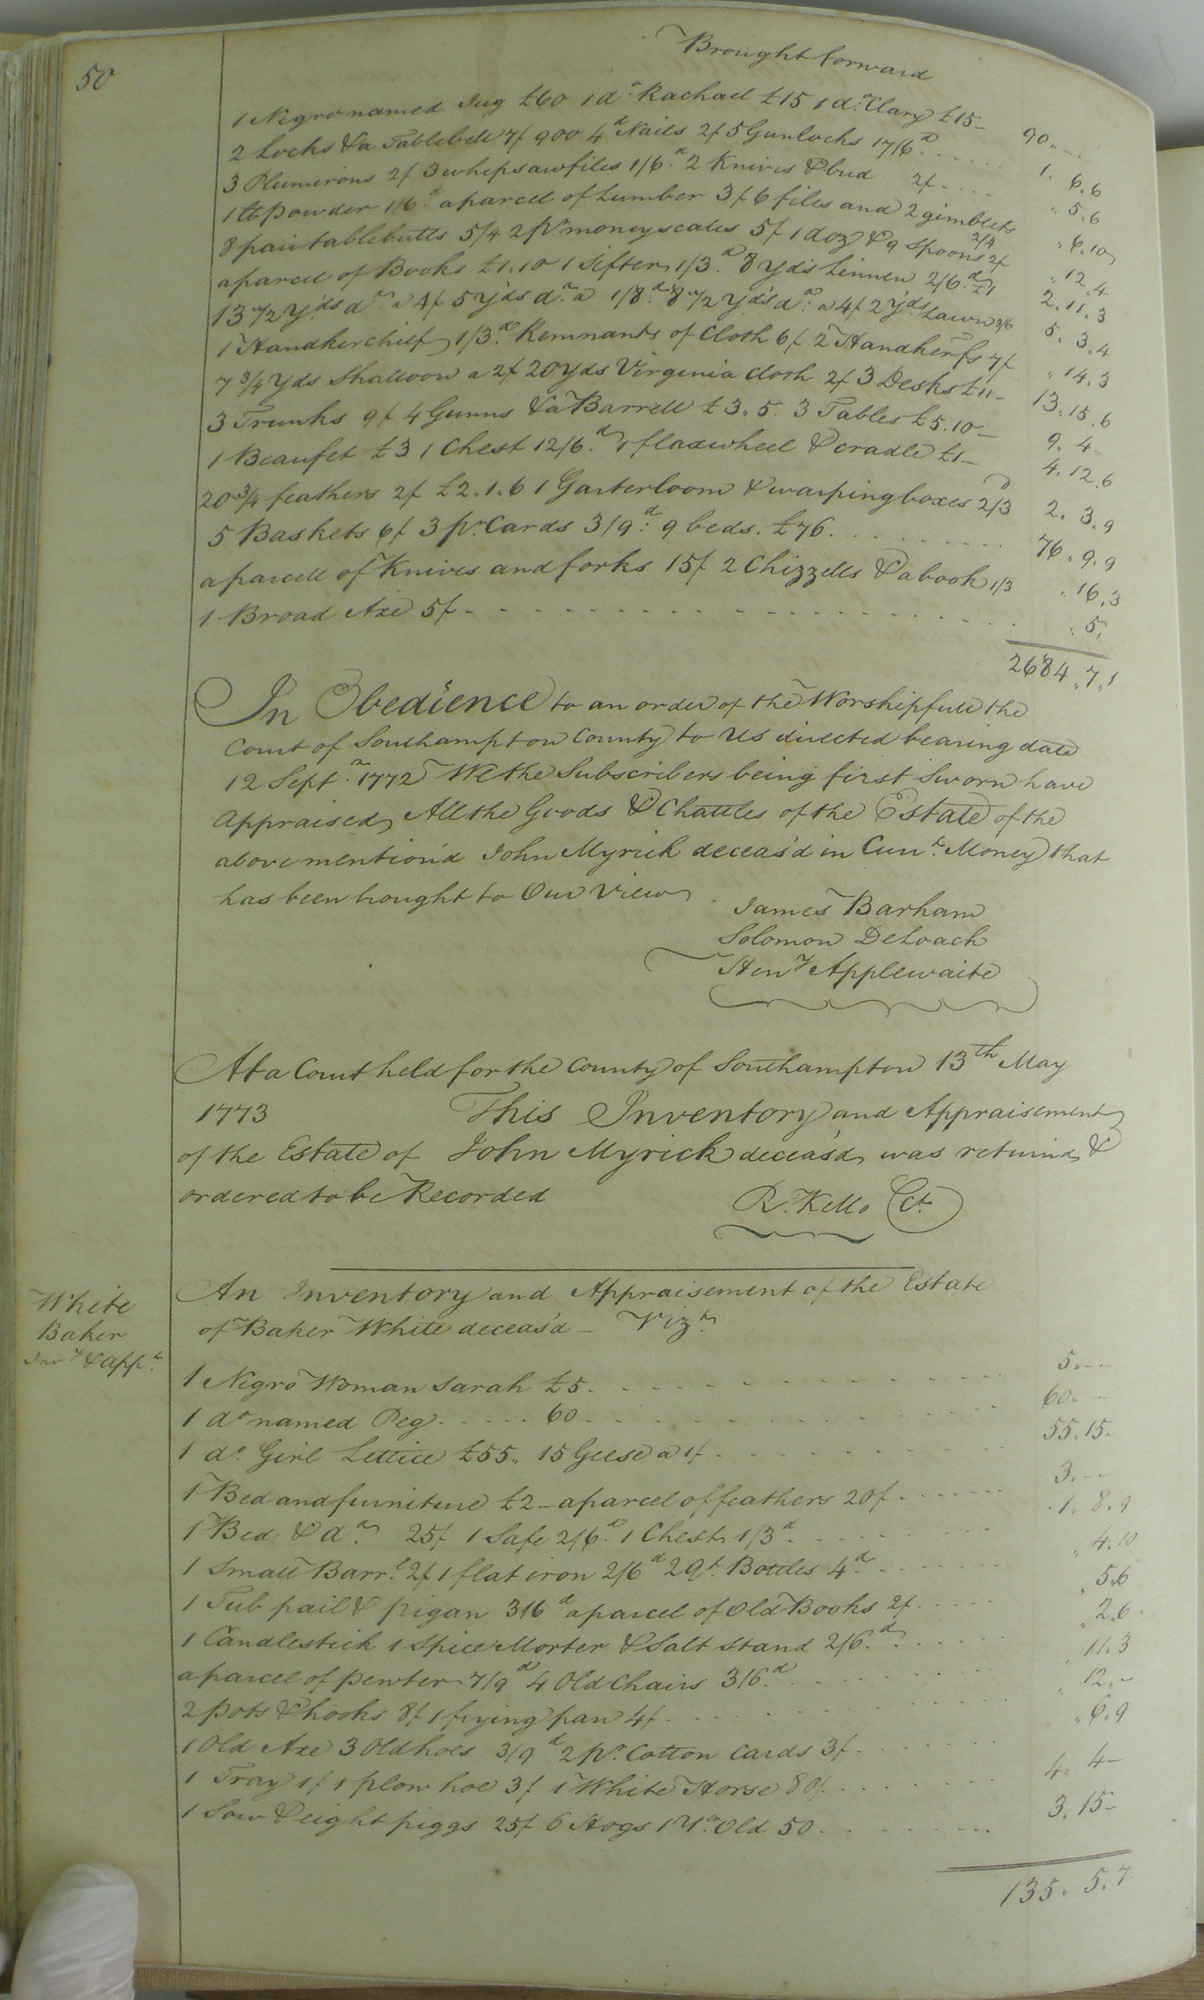 50
Brought forward
1 Negro named Jug £60 1 do. Rachael £15 1 do. Clary £15 90..
2 Locks & a Tablebell 7/ 900 4d Nails 2/ 5 Gunlocks 17/6d 1. 6.6
3 Plumeirons 2/ 3 whipsawfiles 1/6d 2 Knives & bud 2/ " 5.6
1 lb powder 1/6d a parcel of Lumber 3/ 6 files and 2 gimblets 2/4 " 6.10
8 pair tablebutts 5/4 2 pr. money scales 5/ 1 doz & 9 Spoons 2/ " 12.4
a parcel of Books £1.10 1 Sifter 1/3d 8 yds Linnen 2/6d £1 2.11.3
13 1/2 Yds do. a 4/ 5 Yds do. a 1/8d 8 1/2 Yds do. a 4/ 2 Yds Lawn 3/6 5. 3.4
1 Handkerchief 1/3d Remnants of Cloth 6/ 2 Handkerfs 7/ " 14.3
7 3/4 Yds Shalloon a 2/ 20 yds Virginia cloth 2/ 3 Desks £11 13.15.6
3 Trunks 9/ 4 Gunns & a Barrell £3.5. 3 Tables £5.10 9. 4
1 Beaufet £3 1 Chest 12/6d 1 flaxwheel & cradle £1 4.12.6
20 3/4 feathers 2/ £2.1.6 1 Garterloom & warping boxes 2/3 2. 3.9
5 Baskets 6/ 3 pr. Cards 3/9d: 9 beds. £76 76.9.9
a parcell of Knives and forks 15/ 2 Chizzells & a book 1/3 " 16.3
1 Broad Axe 5/ " 5.
2684.7.1
In Obedience to an order of the Worshipfull the
Court of Southampton County to us directed bearing date
12 Septr. 1772 We the Subscribers being first Sworn have
appraised All the Goods & Chattles of the Estate of the
above mention'd John Myrick deceas'd in Curt. Money that
has been brought to Our View
James Barham
Solomon DeLoach
Heny Applewaite
At a Court held for the County of Southampton 13th May
1773 This Inventory and Appraisement
of the Estate of John Myrick deceas'd was returnd &
ordered to be Recorded R. Kello Ct.
White
Baker
Invy & appt.
An Inventory and Appraisement of the Estate
of Baker White deceas'd Vizt.
1 Negro Woman Sarah £5 5.
1 do named Peg 60 60
1 do. Girl Lettice £55. 15 Geese a 1/ 55.15
1 Bed and furniture £2 a parcel of feathers 20/ 3.
1 Bed & do. 25/ 1 Safe 2/6d 1 Chest 1/3d 1. 8.9
1 Small Barrl. 2/ 1 flat iron 2/6d 2 Qt. Bottles 4d " 4.10
1 Tub pail & pigan 3/6d a parcel of Old Books 2/ " 5.6
1 Candlestick 1 Spice Morter & Salt Stand 2/6d " 2.6
a parcel of pewter 7/9d 4 Old Chairs 3/6d " 11.3
2 pots & hooks 8/ 1 frying pan 4/ " 12.
1 Old Axe 3 Old hoes 3/9d 2 pr. Cotton Cards 3/ " 6.9
1 Tray 1/ 1 plow hoe 3/ 1 White Horse 80/ 4. 4
1 Sow & eight piggs 25/ 6 Hogs 1 Yr. Old 50 3.15
135. 5.7